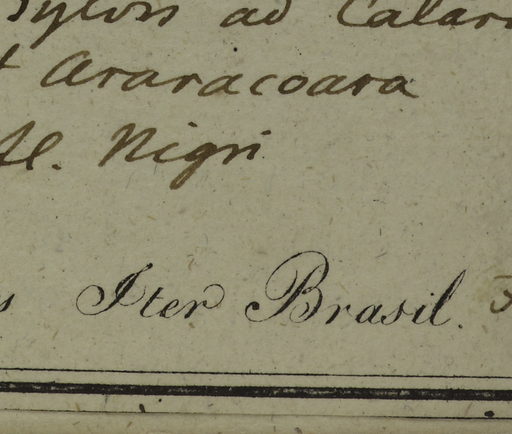 Sylvis ad Catara
Araracoara
fl. Nigri
s Iter Brasil.